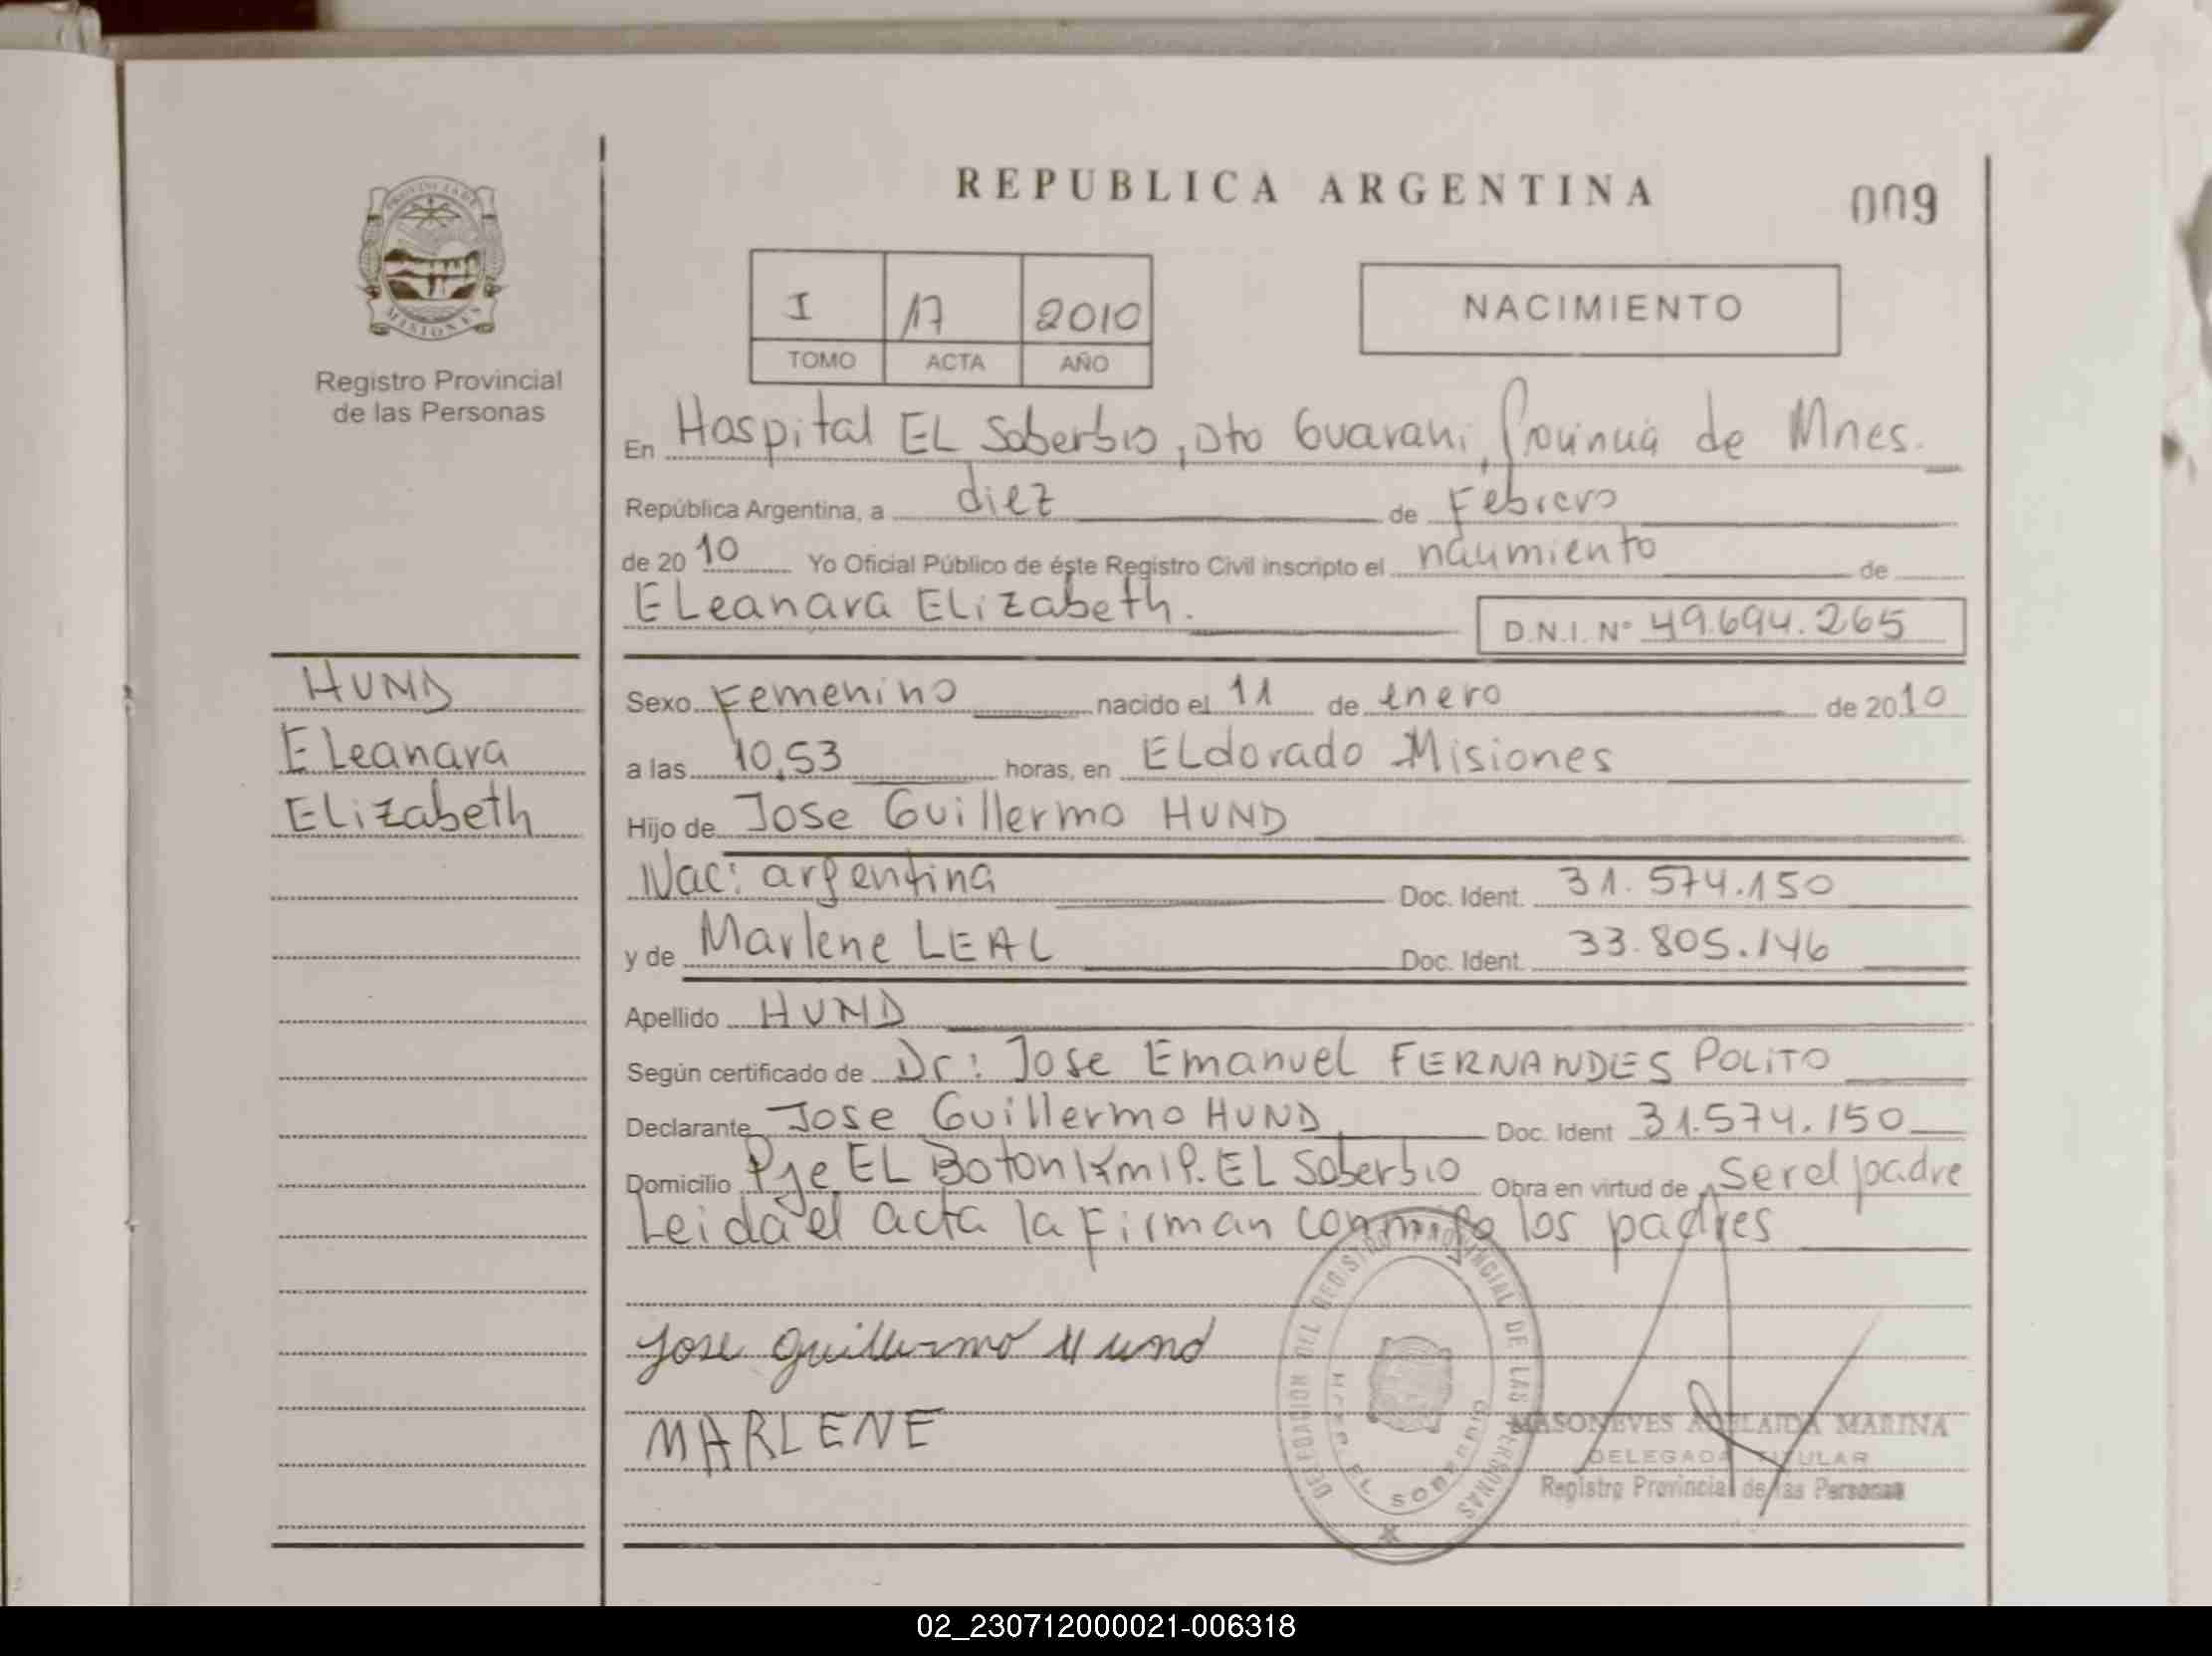 REPUBLICA ARGENTINA
009
PROVINCIA DE
MISIONES
Registro Provincial
de las Personas
I 17 2010
TOMO ACTA AÑO
NACIMIENTO
En Hospital EL Soberbio, Dto Guarani, Provincia de Mnes.
República Argentina, a diez de Febrero
de 2010 Yo Oficial Público de éste Registro Civil inscripto el nacimiento de
ELeanara ELizabeth.
D.N.I. Nº 49.694.265
HUND
ELeanara
ELizabeth
Sexo Femenino nacido el 11 de enero de 2010
a las 10,53 horas, en ELdorado Misiones
Hijo de Jose Guillermo HUND
Nac: argentina Doc. Ident. 31.574.150
y de Marlene LEAL Doc. Ident. 33.805.146
Apellido HUND
Según certificado de Dr: Jose Emanuel FERNANDES POLITO
Declarante Jose Guillermo HUND Doc. Ident 31.574.150
Domicilio Pje EL Boton Km 19. EL Soberbio Obra en virtud de Ser el padre
Leida el acta la Firman conmigo los padres
Jose Guillermo Hund
MARLENE
DELEGACION DEL REGISTRO PROVINCIAL DE LAS PERSONAS
EL SOBERBIO
MASONEVES ADELAIDA MARINA
DELEGADA TITULAR
Registro Provincial de las Personas
02_230712000021-006318